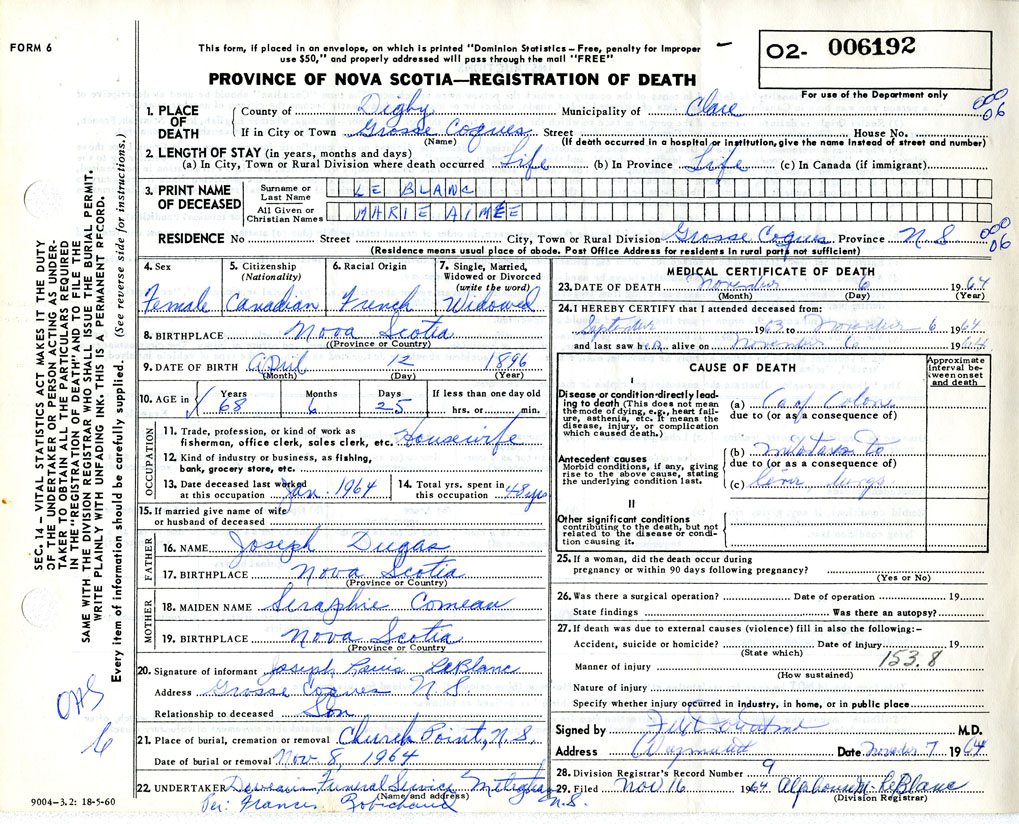 FORM 6
This form, if placed in an envelope, on which is printed "Dominion Statistics – Free, penalty for improper
use $50," and properly addressed will pass through the mail "FREE"
PROVINCE OF NOVA SCOTIA—REGISTRATION OF DEATH
O2- 006192
For use of the Department only
000
06
1. PLACE OF DEATH
County of Digby Municipality of Clare
If in City or Town Grosse Coques Street House No.
(Name) (If death occurred in a hospital or institution, give the name instead of street and number)
2. LENGTH OF STAY (in years, months and days)
(a) In City, Town or Rural Division where death occurred Life (b) In Province Life (c) In Canada (if immigrant)
3. PRINT NAME OF DECEASED
Surname or Last Name LE BLANC
All Given or Christian Names MARIE AIMEE
RESIDENCE No Street City, Town or Rural Division Grosse Coques Province N.S.
000
06
(Residence means usual place of abode. Post Office Address for residents in rural parts not sufficient)
4. Sex Female
5. Citizenship (Nationality) Canadian
6. Racial Origin French
7. Single, Married, Widowed or Divorced (write the word) Widowed
8. BIRTHPLACE Nova Scotia
(Province or Country)
9. DATE OF BIRTH April 12 1896
(Month) (Day) (Year)
10. AGE in Years 68 Months 6 Days 25 If less than one day old hrs. or min.
OCCUPATION
11. Trade, profession, or kind of work as
fisherman, office clerk, sales clerk, etc. Housewife
12. Kind of industry or business, as fishing,
bank, grocery store, etc.
13. Date deceased last worked
at this occupation Jan. 1964
14. Total yrs. spent in
this occupation 48 yrs
15. If married give name of wife
or husband of deceased
FATHER
16. NAME Joseph Dugas
17. BIRTHPLACE Nova Scotia
(Province or Country)
MOTHER
18. MAIDEN NAME Seraphie Comeau
19. BIRTHPLACE Nova Scotia
(Province or Country)
20. Signature of informant Joseph Louis LeBlanc
Address Grosse Coques N.S.
Relationship to deceased Son
21. Place of burial, cremation or removal Church Point, N.S.
Date of burial or removal Nov 8, 1964
22. UNDERTAKER Funeral Service Meteghan N.S.
(Name and address)
Per: Francis Robichaud
MEDICAL CERTIFICATE OF DEATH
23. DATE OF DEATH November 6 1964
(Month) (Day) (Year)
24. I HEREBY CERTIFY that I attended deceased from:
September 1963 to November 6 1964
and last saw her alive on November 6 1964
CAUSE OF DEATH
Approximate interval between onset and death
I
Disease or condition directly leading to death (This does not mean the mode of dying, e.g., heart failure, asthenia, etc. It means the disease, injury, or complication which caused death.)
(a) Ca of Colon
due to (or as a consequence of)
Antecedent causes
Morbid conditions, if any, giving rise to the above cause, stating the underlying condition last.
(b) to
due to (or as a consequence of)
(c) liver, lungs
II
Other significant conditions
contributing to the death, but not related to the disease or condition causing it.
25. If a woman, did the death occur during
pregnancy or within 90 days following pregnancy?
(Yes or No)
26. Was there a surgical operation? Date of operation 19
State findings Was there an autopsy?
27. If death was due to external causes (violence) fill in also the following:–
Accident, suicide or homicide? Date of injury 19
(State which)
153.8
Manner of injury
(How sustained)
Nature of injury
Specify whether injury occurred in industry, in home, or in public place
Signed by M.D.
Address Weymouth Date November 7 1964
28. Division Registrar's Record Number 9
29. Filed Nov 16 1964 Alphonse M. LeBlanc
(Division Registrar)
SEC. 14 – VITAL STATISTICS ACT MAKES IT THE DUTY
OF THE UNDERTAKER OR PERSON ACTING AS UNDERTAKER TO OBTAIN ALL THE PARTICULARS REQUIRED
IN THE "REGISTRATION OF DEATH" AND TO FILE THE
SAME WITH THE DIVISION REGISTRAR WHO SHALL ISSUE THE BURIAL PERMIT.
WRITE PLAINLY WITH UNFADING INK. THIS IS A PERMANENT RECORD.
Every item of information should be carefully supplied. (See reverse side for instructions.)
9004-3.2: 18-5-60